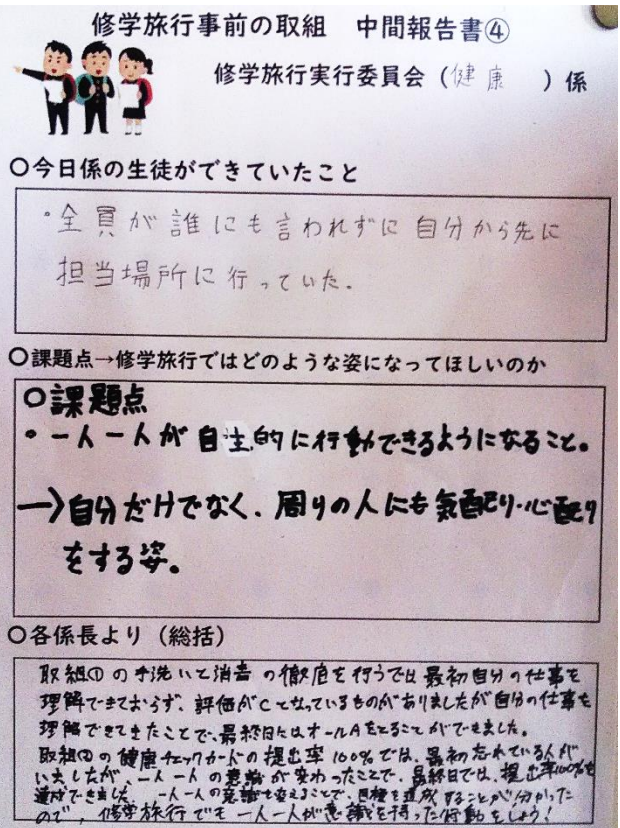 修学旅行事前の取組 中間報告書④
修学旅行実行委員会(健康 )係
〇今日係の生徒ができていたこと
・全員が誰にも言われずに自分から先に
担当場所に行っていた.
〇課題点→修学旅行ではどのような姿になってほしいのか
〇課題点
・一人一人が自主的に行動できるようになること。
→自分だけでなく、周りの人にも気配り・心配り
をする姿。
〇各係長より(総括)
取組①の手洗いと消毒の徹底を行うでは最初自分の仕事を
理解できておらず、評価がCとなっているものがありましたが自分の仕事を
理解できてきたことで、最終日にはオールAをとることができました。
取組②の健康チェックカードの提出率100%では、最初忘れている人が
いましたが、一人一人の意識が変わったことで、最終日では、提出率100%を
達成できました。一人一人の意識を変えることで、目標を達成することが分かった
ので、修学旅行でも一人一人が意識を持った行動をしよう!